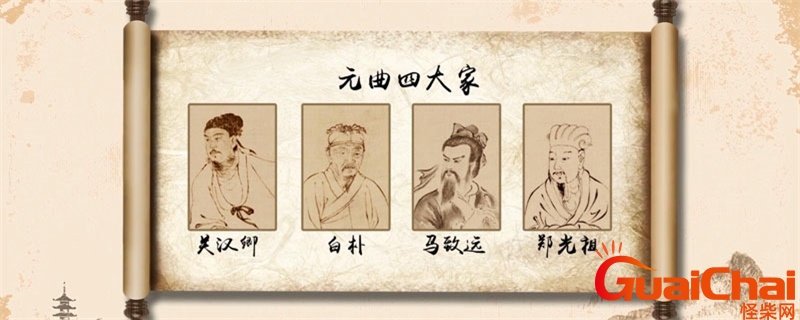 元曲四大家
关汉卿
白朴
马致远
郑光祖
GuaiChai
怪柴网